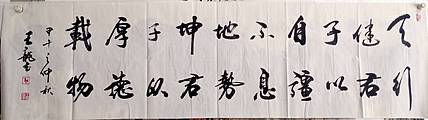 天行
健君
子以
自彊
不息
地勢
坤君
子以
厚德
載物
甲午之仲秋